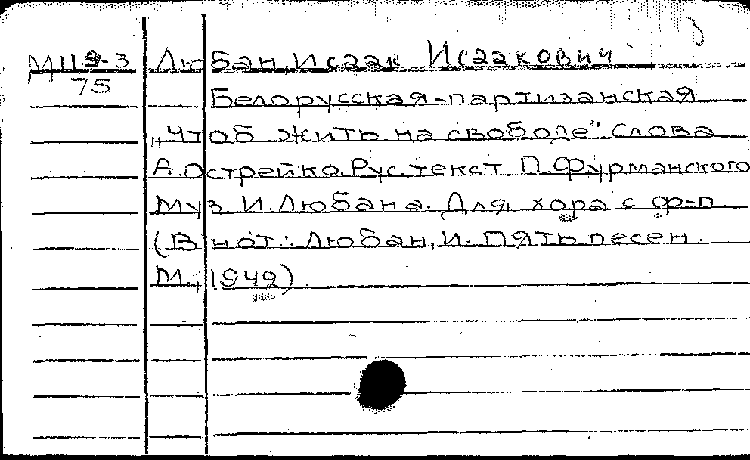 МЦ9-3 Любан, Исаак Исаакович
75
Белорусская-партизанская
„Чтоб жить на свободе". Слова
А. Острейко. Рус. текст П. Фурманского
Муз. И. Любана. Для хора с ф-п
(В нот.: Любан, И. Пять песен.
М., 1949).